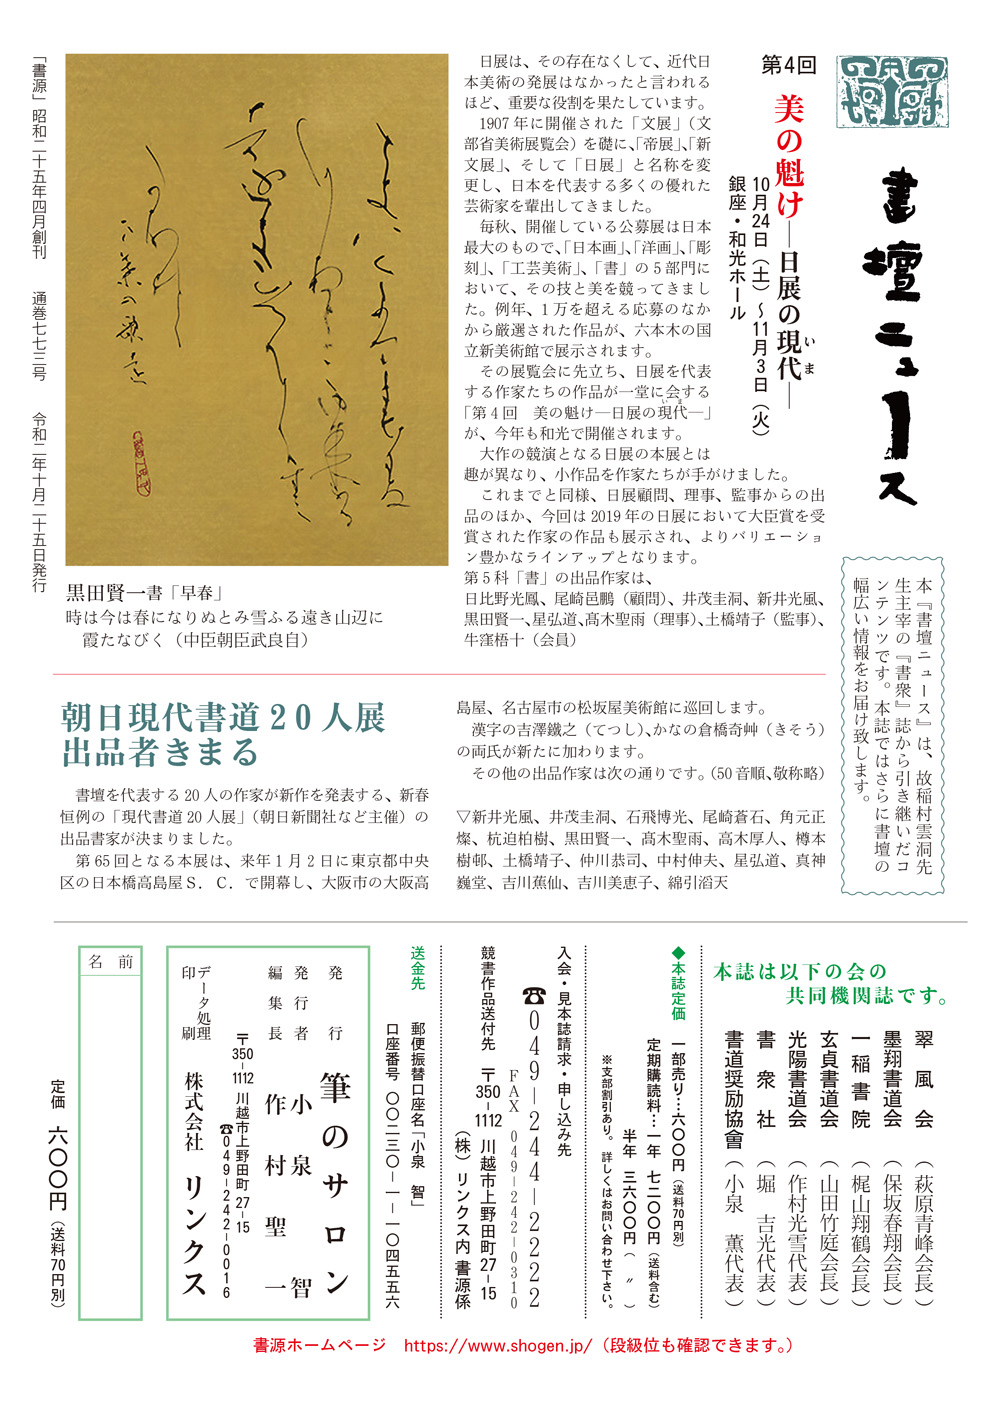 書壇ニュース
本『書壇ニュース』は、故稲村雲洞先
生主宰の『書衆』誌から引き継いだコ
ンテンツです。本誌ではさらに書壇の
幅広い情報をお届け致します。
第4回
美の魁け―日展の現代―
いま
10月24日（土）～11月3日（火）
銀座・和光ホール
日展は、その存在なくして、近代日
本美術の発展はなかったと言われる
ほど、重要な役割を果たしています。
1907年に開催された「文展」（文
部省美術展覧会）を礎に、「帝展」、「新
文展」、そして「日展」と名称を変
更し、日本を代表する多くの優れた
芸術家を輩出してきました。
毎秋、開催している公募展は日本
最大のもので、「日本画」、「洋画」、「彫
刻」、「工芸美術」、「書」の５部門に
おいて、その技と美を競ってきまし
た。例年、１万を超える応募のなか
から厳選された作品が、六本木の国
立新美術館で展示されます。
その展覧会に先立ち、日展を代表
する作家たちの作品が一堂に会する
「第４回　美の魁け―日展の現代―」
いま
が、今年も和光で開催されます。
大作の競演となる日展の本展とは
趣が異なり、小作品を作家たちが手がけました。
これまでと同様、日展顧問、理事、監事からの出
品のほか、今回は2019年の日展において大臣賞を受
賞された作家の作品も展示され、よりバリエーショ
ン豊かなラインアップとなります。
第５科「書」の出品作家は、
日比野光鳳、尾崎邑鵬（顧問）、井茂圭洞、新井光風、
黒田賢一、星弘道、髙木聖雨（理事）、土橋靖子（監事）、
牛窪梧十（会員）
黒田賢一書「早春」
時は今は春になりぬとみ雪ふる遠き山辺に
霞たなびく（中臣朝臣武良自）
「書源」昭和二十五年四月創刊　通巻七七三号　令和二年十月二十五日発行
朝日現代書道20人展
出品者きまる
書壇を代表する20人の作家が新作を発表する、新春
恒例の「現代書道20人展」（朝日新聞社など主催）の
出品書家が決まりました。
第65回となる本展は、来年１月２日に東京都中央
区の日本橋高島屋Ｓ．Ｃ．で開幕し、大阪市の大阪高
島屋、名古屋市の松坂屋美術館に巡回します。
漢字の吉澤鐵之（てつし）、かなの倉橋奇艸（きそう）
の両氏が新たに加わります。
その他の出品作家は次の通りです。（50音順、敬称略）
▽新井光風、井茂圭洞、石飛博光、尾崎蒼石、角元正
燦、杭迫柏樹、黒田賢一、髙木聖雨、高木厚人、樽本
樹邨、土橋靖子、仲川恭司、中村伸夫、星弘道、真神
巍堂、吉川蕉仙、吉川美恵子、綿引滔天
本誌は以下の会の
共同機関誌です。
翠風会（萩原青峰会長）
墨翔書道会（保坂春翔会長）
一稲書院（梶山翔鶴会長）
玄貞書道会（山田竹庭会長）
光陽書道会（作村光雪代表）
書衆社（堀　吉光代表）
書道奨励協會（小泉　薫代表）
◆本誌定価　一部売り…六〇〇円（送料70円別）
定期購読料…一年　七二〇〇円（送料含む）
半年　三六〇〇円（　〃　）
※支部割引あり。詳しくはお問い合わせ下さい。
入会・見本誌請求・申し込み先
☎049－244－2222
FAX 049-242-0310
競書作品送付先　〒350-1112 川越市上野田町27-15
（株）リンクス内 書源係
送金先　郵便振替口座名「小泉　智」
口座番号　〇〇二三〇－一－一〇四五五六
発行　筆のサロン
発行者　小泉　智
編集長　作村聖一
〒350-1112 川越市上野田町27-15
☎049-242-0016
データ処理
印刷　株式会社　リンクス
名前
定価　六〇〇円（送料70円別）
書源ホームページ　https://www.shogen.jp/（段級位も確認できます。）